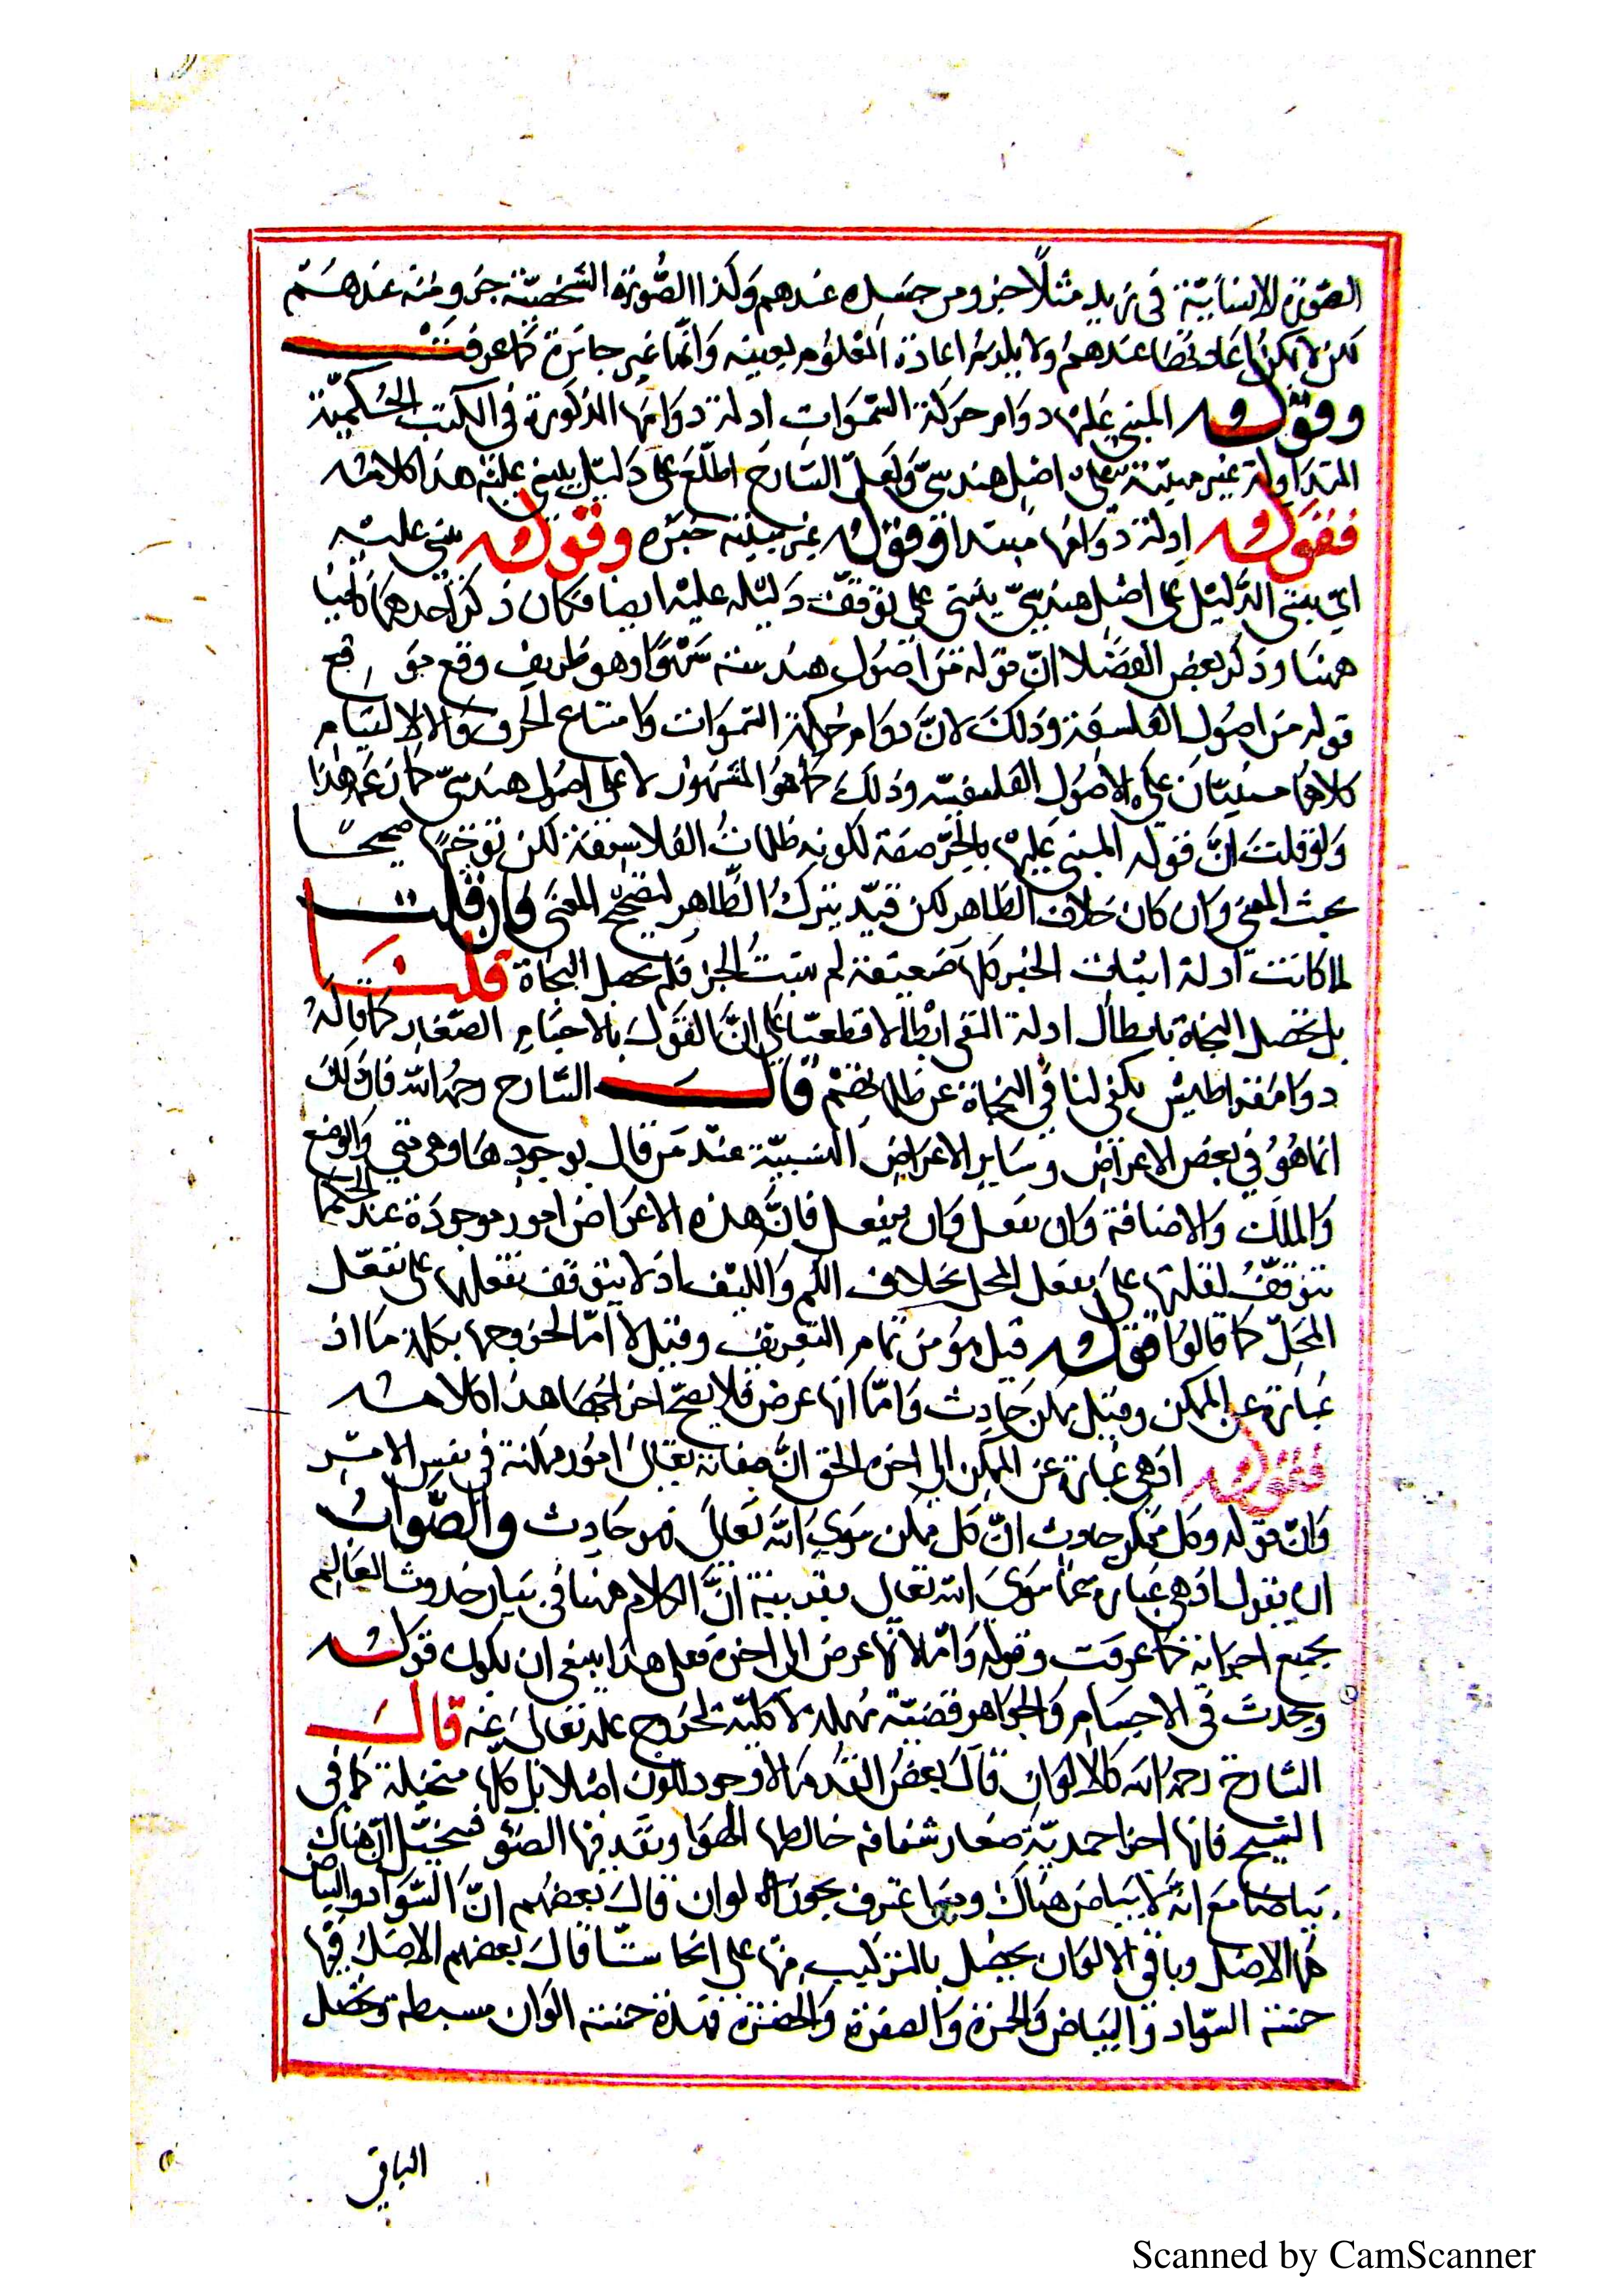 الصورة الانسانية في زيد مثلا جزو من جسده عندهم وكذا الصورة الشخصية جزو منه عندهم
لكن لا يمكن اعادتها عندهم ولا يلزم اعادة المعلوم بعينه وانها غير جائزة كما عرفت
وقوله المبني عليها دوام حركة السموات ادلة دوامها المذكورة في الكتب الحكمية
المتداولة غير مبينة على اصل هندسي ولعل الشارح اطلع على دليل يبنى عليه هذا كلامه
فقوله ادلة دوامها مبتدا وقوله غير مبينه خبره وقوله يبنى عليه
اي يبنى الدليل على اصل هندسي يبنى على توقف دليله عليه ايضا فكان ذكر احدهما
ههنا وذكر بعض الفضلا ان قوله من اصول هندسة سهوا وهو ظريف وقع موقع
قوله من اصول الفلسفة وذلك لان دوام حركة السموات وامتناع الخرق والالتيام
كلاهما مبنيان على الاصول الفلسفيه وذلك كما هو المشهور لا على اصول هندسي كما زعم هذا
ولو قلت ان قوله المبني عليها بالجر صفة لكونه ظلمات الفلاسفة لكن توجيها صحيحا
بحث المعنى وان كان خلاف الظاهر لكن قيد يترك الظاهر لتصحيح المعنى فان قلت
لما كانت ادلة اثبات الجزء كلها ضعيفة لم يثبت الجزء فلم يحصل النجاة قلنا
بل تحصل النجاة بابطال ادلة النفي ابطالا قطعيا على ان القول بالاجسام الصغار كما قاله
دوامقراطيس يكفي لنا في النجاة عن ظلماتهم قال الشارح رحمه الله فان ذلك
انما هو في بعض الاعراض وساير الاعراض النسبية عند من قال بوجودها وهي متى والوضع
والملك والاضافة وان يفعل وان ينفعل فان هذه الاعراض امور موجودة عند الحكما
تتوقف تعقلها على تعقل المحل بخلاف الكم والكيف اذ لا يتوقف تعقلها على تعقل
المحل كما قالوا فقوله قيل هو من تمام التعريف وقيل لا اما لخروجها بكلمة ما اذ
عبارة عن الممكن وقيل ممكن حادث واما انها عرض فلا يصح اخراجها هذا كلامه
فقوله اذ هي عبارة عن الممكن الى اخره الحق ان صفاته تعالى امور ممكنة في نفس الامر
وان قوله وكل ممكن حادث ان كل ممكن سوى الله تعالى فهو حادث والصواب
ان يقول اذ هي عبارة عما سوى الله تعالى بقرينة ان الكلام ههنا في بيان حدوث العالم
بجميع اجزائه كما عرفت وقوله واما لانها عرض الى اخره فعلى هذا ينبغي ان يكون قوله
ويحدث في الاجسام والجواهر قضية مهملة لا كلية لخروج علمه تعالى عنه قال
الشارح رحمه الله كالالوان قال بعض القدما لا وجود للون اصلا بل كلها متخيلة كما في
الثلج فانها اجزا جمدية صغار شفافه خالطها الهوا ونفد فيها الضو فيتخيل ان هناك
بياضا مع انه لا بياض هناك ومنهما عترف بجون الوان قال بعضهم ان السواد والبياض
هما الاصل وباقي الالوان يحصل بالتركيب منها على انحا شتا قال بعضهم الاصل فيها
خمسة السواد والبياض والحمرة والصفرة والخضرة فهذه خمسة الوان بسيطه وتحصل
الباقي
Scanned by CamScanner